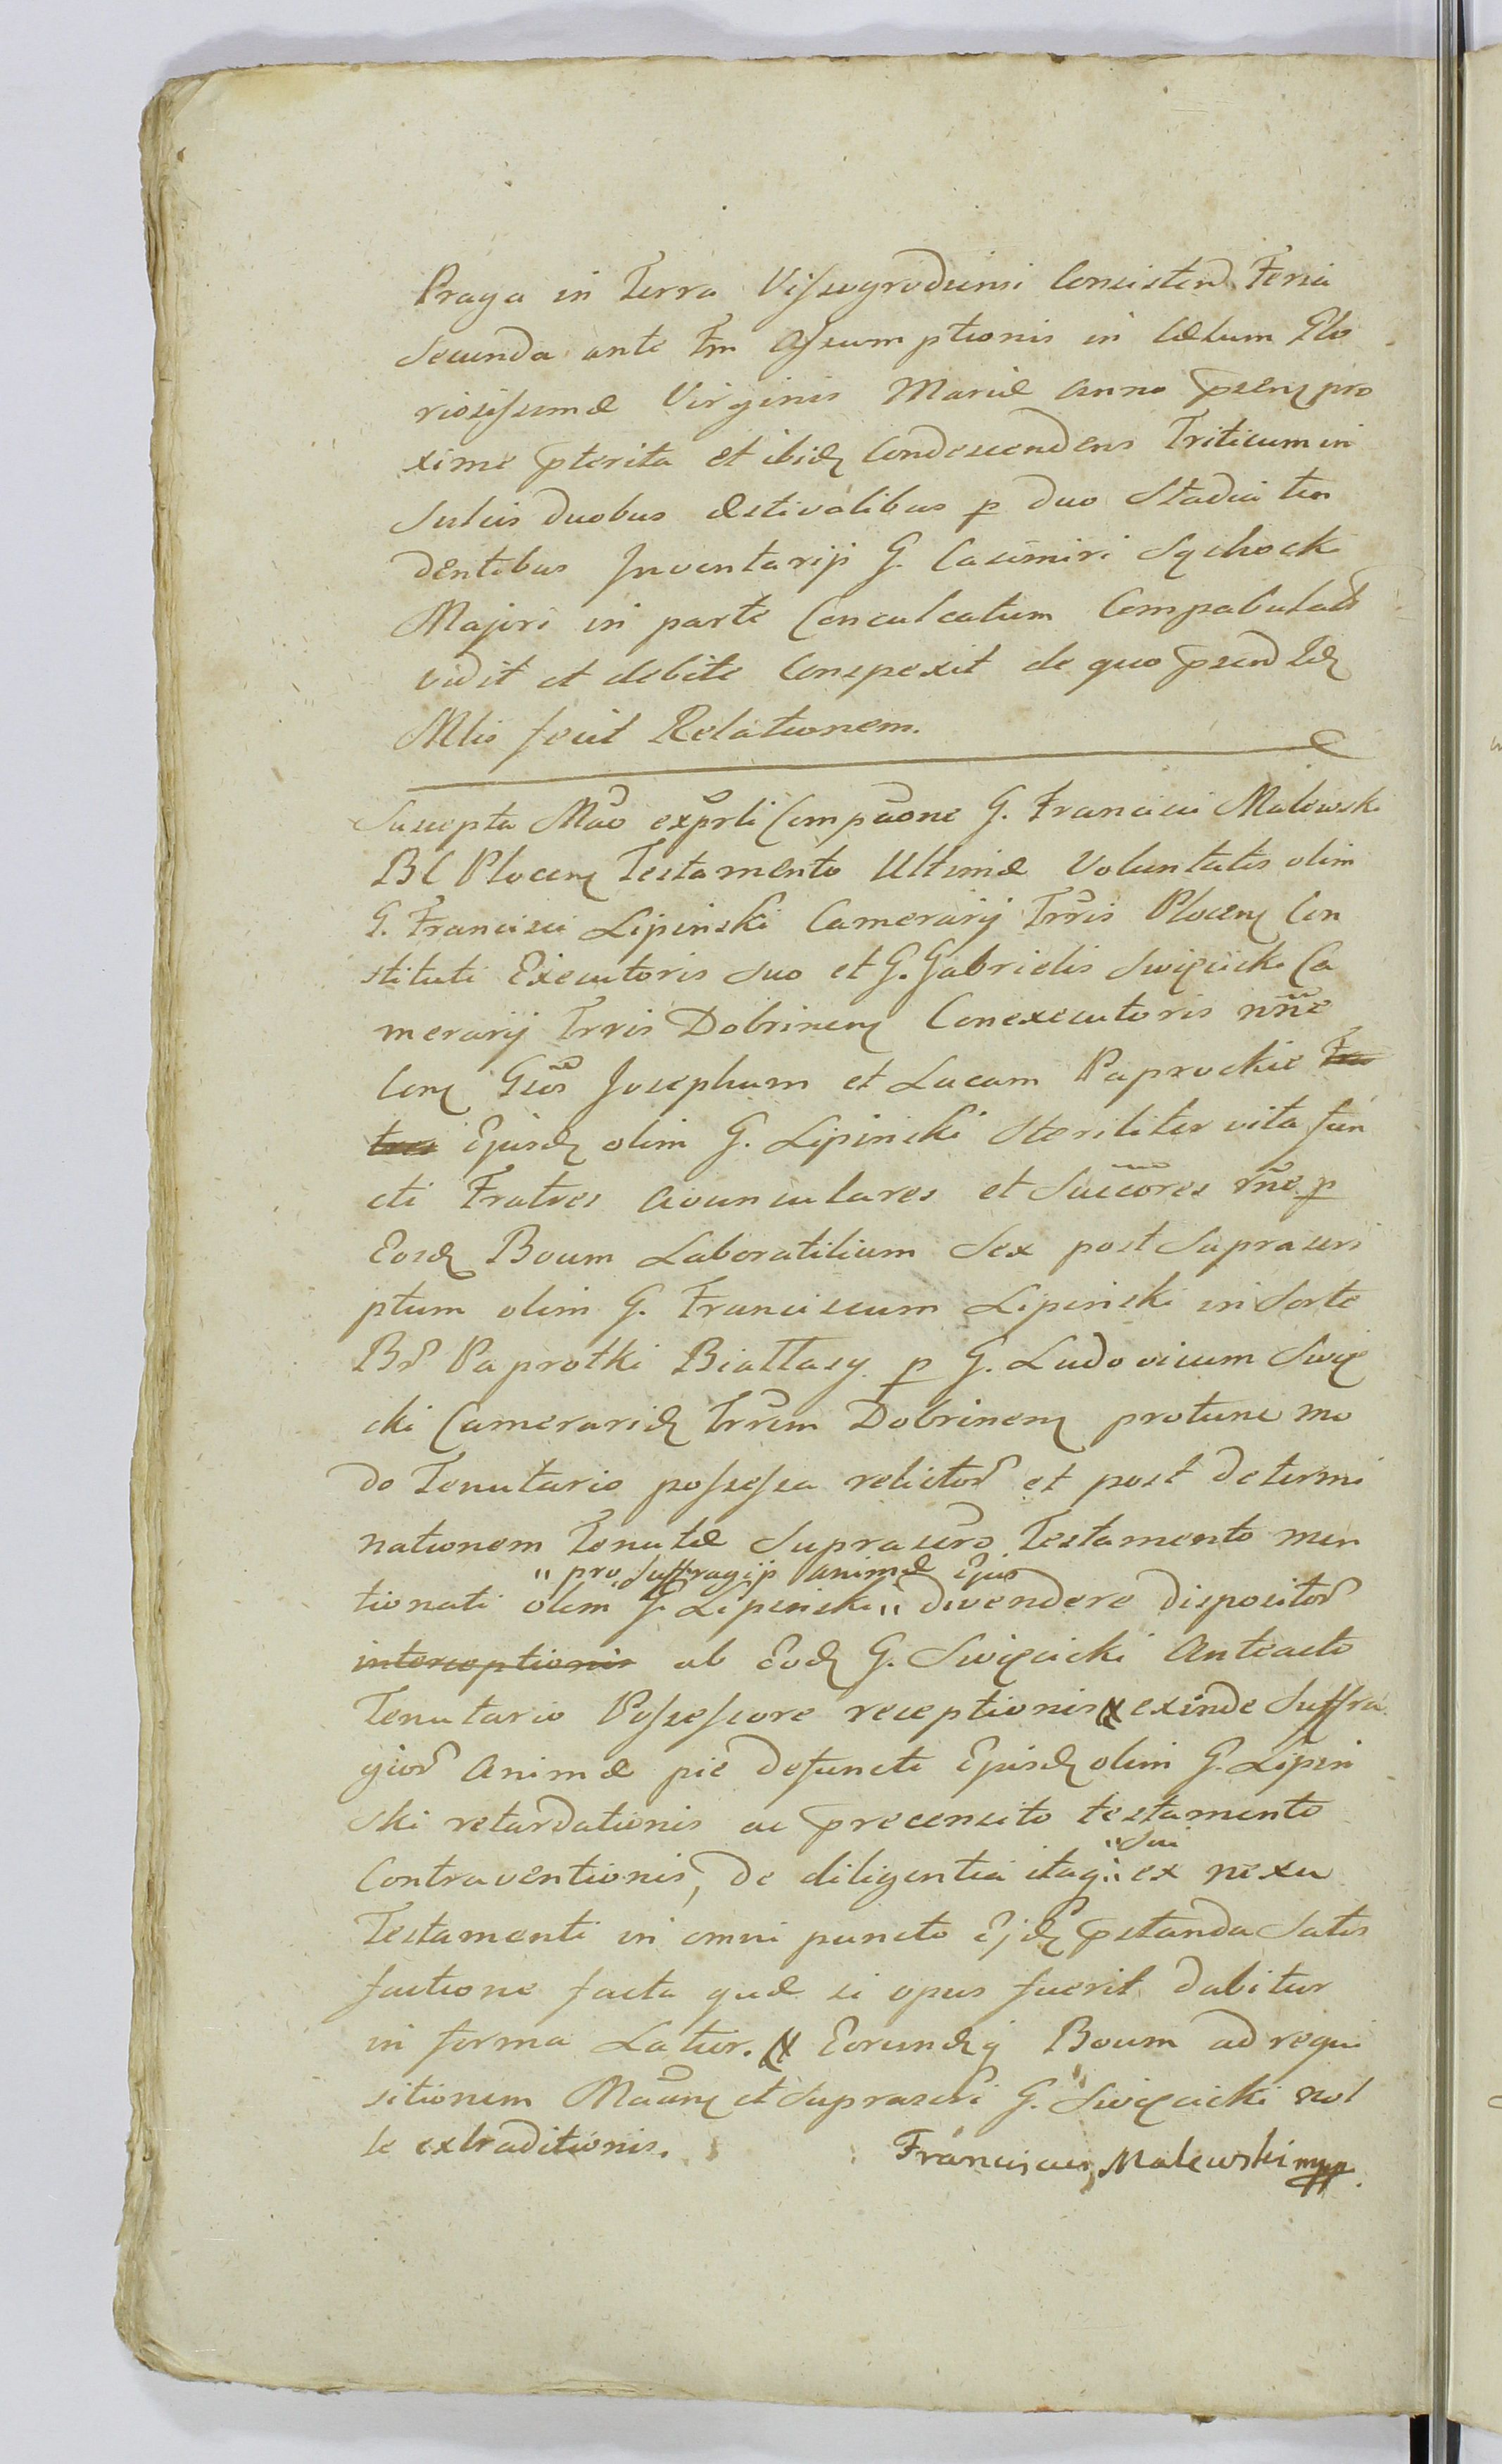 Praga in Terra Vissogrodiensi Consisten Feria
Secunda ante Fm Assumptionis in Cælum Glo
riosissimæ Virginis Mariæ Anno Psenȝ pro
xime pterita et ibid Condescendens Triticum in
Sulcis duobus æstivalibus p duo Stadia ten
dentibus Inventarij G. Casimiri Sędzocki
Majori in parte Conculcatum Compabulatū
vidit et debite Conspexit de quo psend Id
Mlis fecit Relationem.
Suscepta Mão exprli Compãone G. Francisci Malewski
BC Plocenȝ Testamento Ultimæ Voluntatis olim
G. Francisci Lipinski Camerarij Trris Plocenȝ Con
stituti Executoris Suo et G. Gabrielis Swięcicki Ca
merarij Trris Dobrinenȝ Conexecutoris nñe
Conȝ Gsos Josephum et Lucam Paprockie Fra
tres Ejusd olim G. Lipinski Steriliter vita fun
cti Fratres avunculares et Succores rñe p
Eosd Boum Laboratilium Sex post Suprascri
ptum olim G. Franciscum Lipinski in Sorte
Br Paprotki Biattasy p G. Ludovicum Swię
cki Camerarid Trrem Dobrinenȝ protunc mo
do Tenutario possessa relictor et post determi
nationem Tenutæ Suprascro Testamento men
" pro Suffragijs animæ Ejus
tionati olim G. Lipinski " divendere dispositor
interceptionis ab Eod G. Swięcicki Anteacto
Tenutario Possessore receptionis & exinde Suffra
gior Animæ pie defuncti Ejusd olim G. Lipin
ski retardationis ac precensito testamento
" Sui
Contraventionis, de diligentia itaq " ex nexu
Testamenti in omni puncto Ejd pstanda Satis
factione facta quæ si opus fuerit dabitur
in forma Latior. & Eorundq Boum ad requi
sitionem Maãnȝ et Suprascri G. Swięcicki nol
le extraditionis.
Franciscus Malewski mpp.